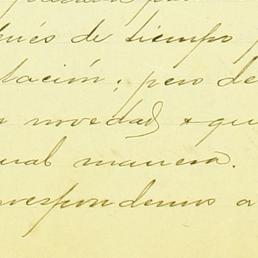 pués de tiempo
lación; pero de
novedad & qu
ual manera.
respondemos a